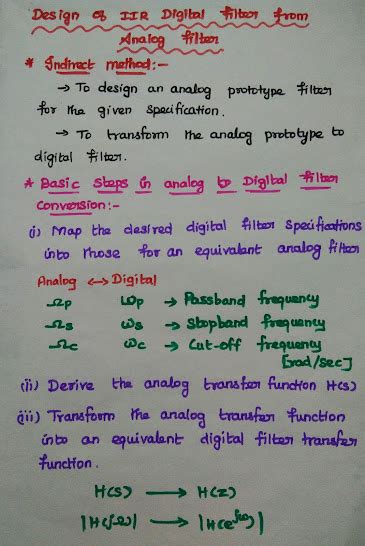 Design of IIR Digital filter from
Analog filter
* Indirect method:-
→ To design an analog prototype filter
for the given specification.
→ To transform the analog prototype to
digital filter.
* Basic steps in analog to Digital filter
Conversion:-
(i) Map the desired digital filter specifications
into those for an equivalent analog filter
Analog ↔ Digital
Ωp ωp → Passband frequency
Ωs ωs → Stopband frequency
Ωc ωc → Cut-off frequency
[rad/sec]
(ii) Derive the analog transfer function H(s)
(iii) Transform the analog transfer function
into an equivalent digital filter transfer
function.
H(s) → H(z)
|H(jΩ)| → |H(e^jω)|